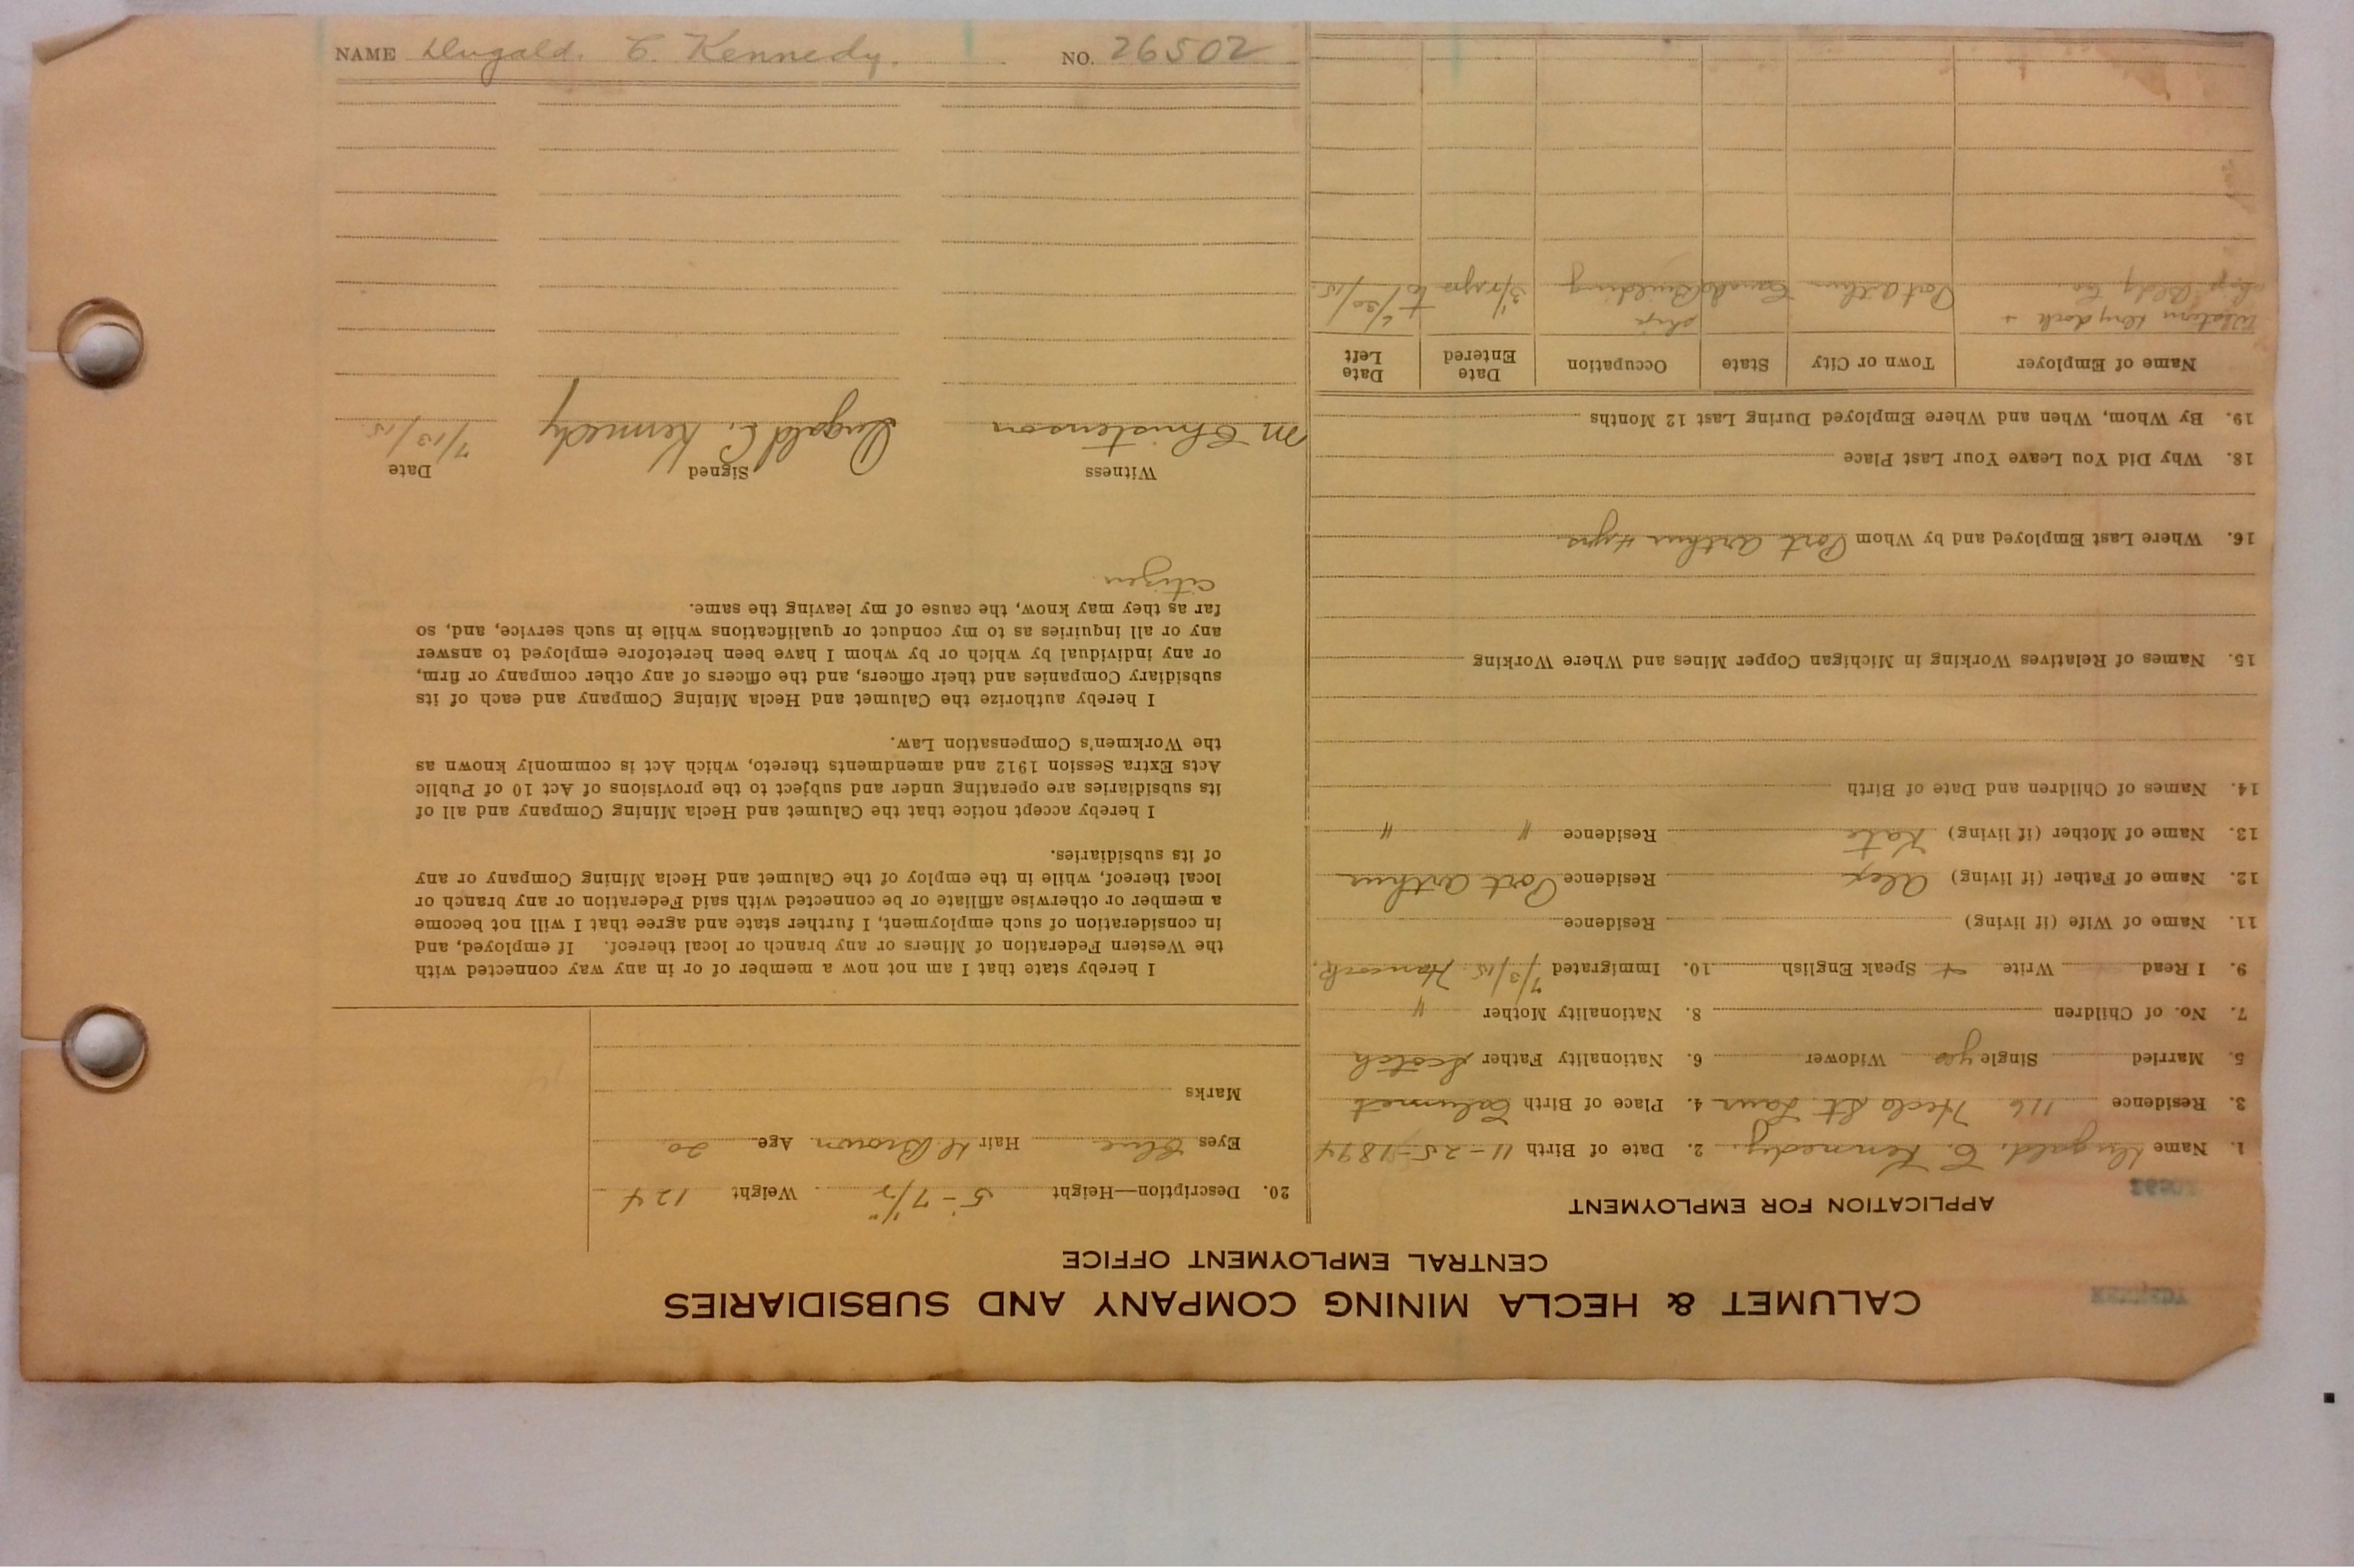 CALUMET & HECLA MINING COMPANY AND SUBSIDIARIES
CENTRAL EMPLOYMENT OFFICE
APPLICATION FOR EMPLOYMENT
1. Name Dugald. C. Kennedy. 2. Date of Birth 11-25-1894
3. Residence 116 Hecla St. Laur 4. Place of Birth Calumet
5. Married Single yes Widower 6. Nationality Father Scotch
7. No. of Children 8. Nationality Mother "
9. I Read Write + Speak English 10. Immigrated 7/3/15 Hancock,
11. Name of Wife (if living) Residence
12. Name of Father (if living) Alex Residence Port Arthur
13. Name of Mother (if living) Kate Residence " "
14. Names of Children and Date of Birth
15. Names of Relatives Working in Michigan Copper Mines and Where Working
16. Where Last Employed and by Whom Port Arthur 4 yrs
18. Why Did You Leave Your Last Place
19. By Whom, When and Where Employed During Last 12 Months
Name of Employer Town or City State Occupation Date Entered Date Left
Western Dry dock + ship
Ship Bldg Co. Port Arthur Canada Building
20. Description—Height 5'-7 1/2" Weight 124
Eyes Blue Hair D. Brown. Age 20
Marks
I hereby state that I am not now a member of or in any way connected with
the Western Federation of Miners or any branch or local thereof. If employed, and
in consideration of such employment, I further state and agree that I will not become
a member or otherwise affiliate or be connected with said Federation or any branch or
local thereof, while in the employ of the Calumet and Hecla Mining Company or any
of its subsidiaries.
I hereby accept notice that the Calumet and Hecla Mining Company and all of
its subsidiaries are operating under and subject to the provisions of Act 10 of Public
Acts Extra Session 1912 and amendments thereto, which Act is commonly known as
the Workmen's Compensation Law.
I hereby authorize the Calumet and Hecla Mining Company and each of its
subsidiary Companies and their officers, and the officers of any other company or firm,
or any individual by which or by whom I have been heretofore employed to answer
any or all inquiries as to my conduct or qualifications while in such service, and, so
far as they may know, the cause of my leaving the same.
citizen
Witness Signed Date
M Christenson Dugald C. Kennedy 7/13/15.
NAME Dugald. C. Kennedy. NO. 26502